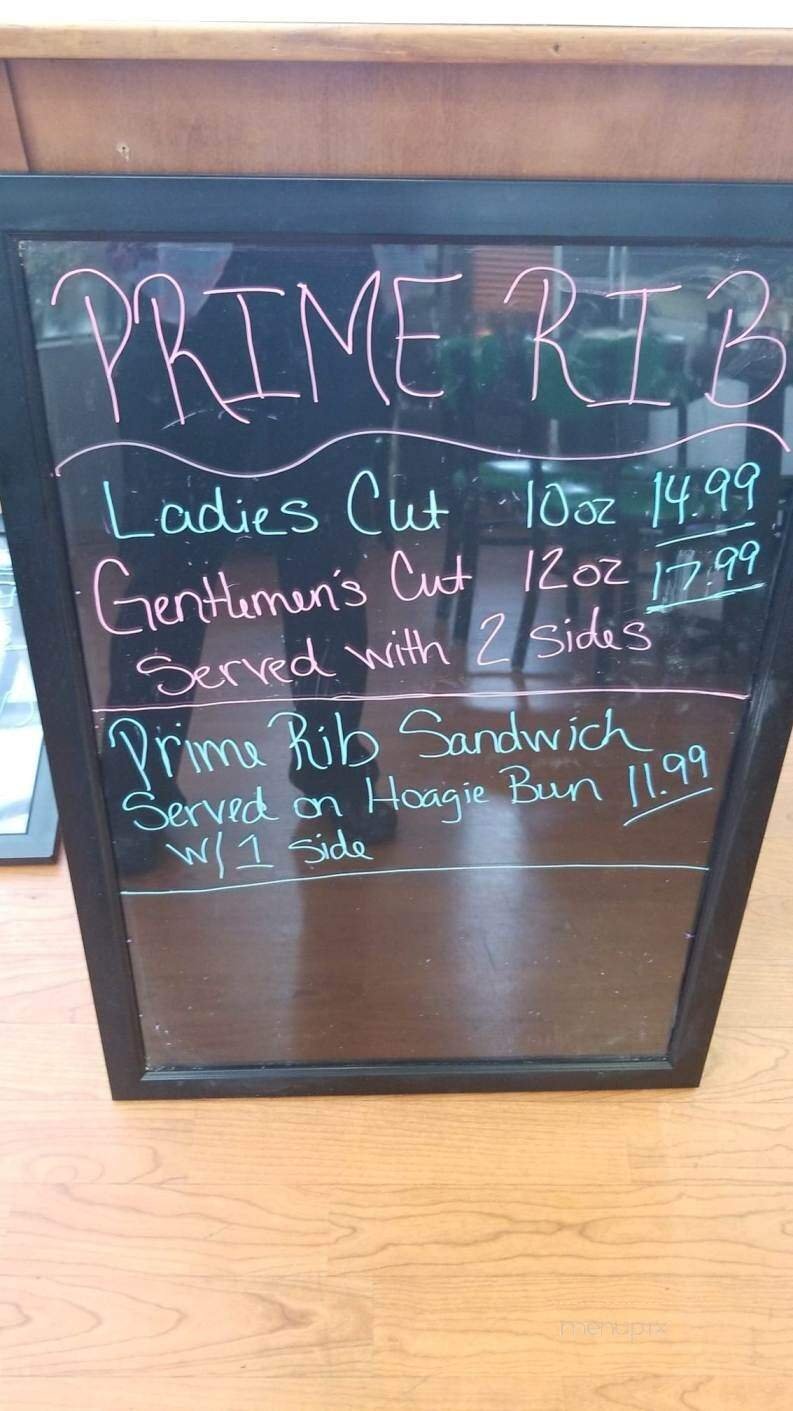 PRIME RIB
Ladies Cut 10oz 14.99
Gentlemen's Cut 12oz 17.99
Served with 2 sides
Prime Rib Sandwich
Served on Hoagie Bun 11.99
W/ 1 side
menupix